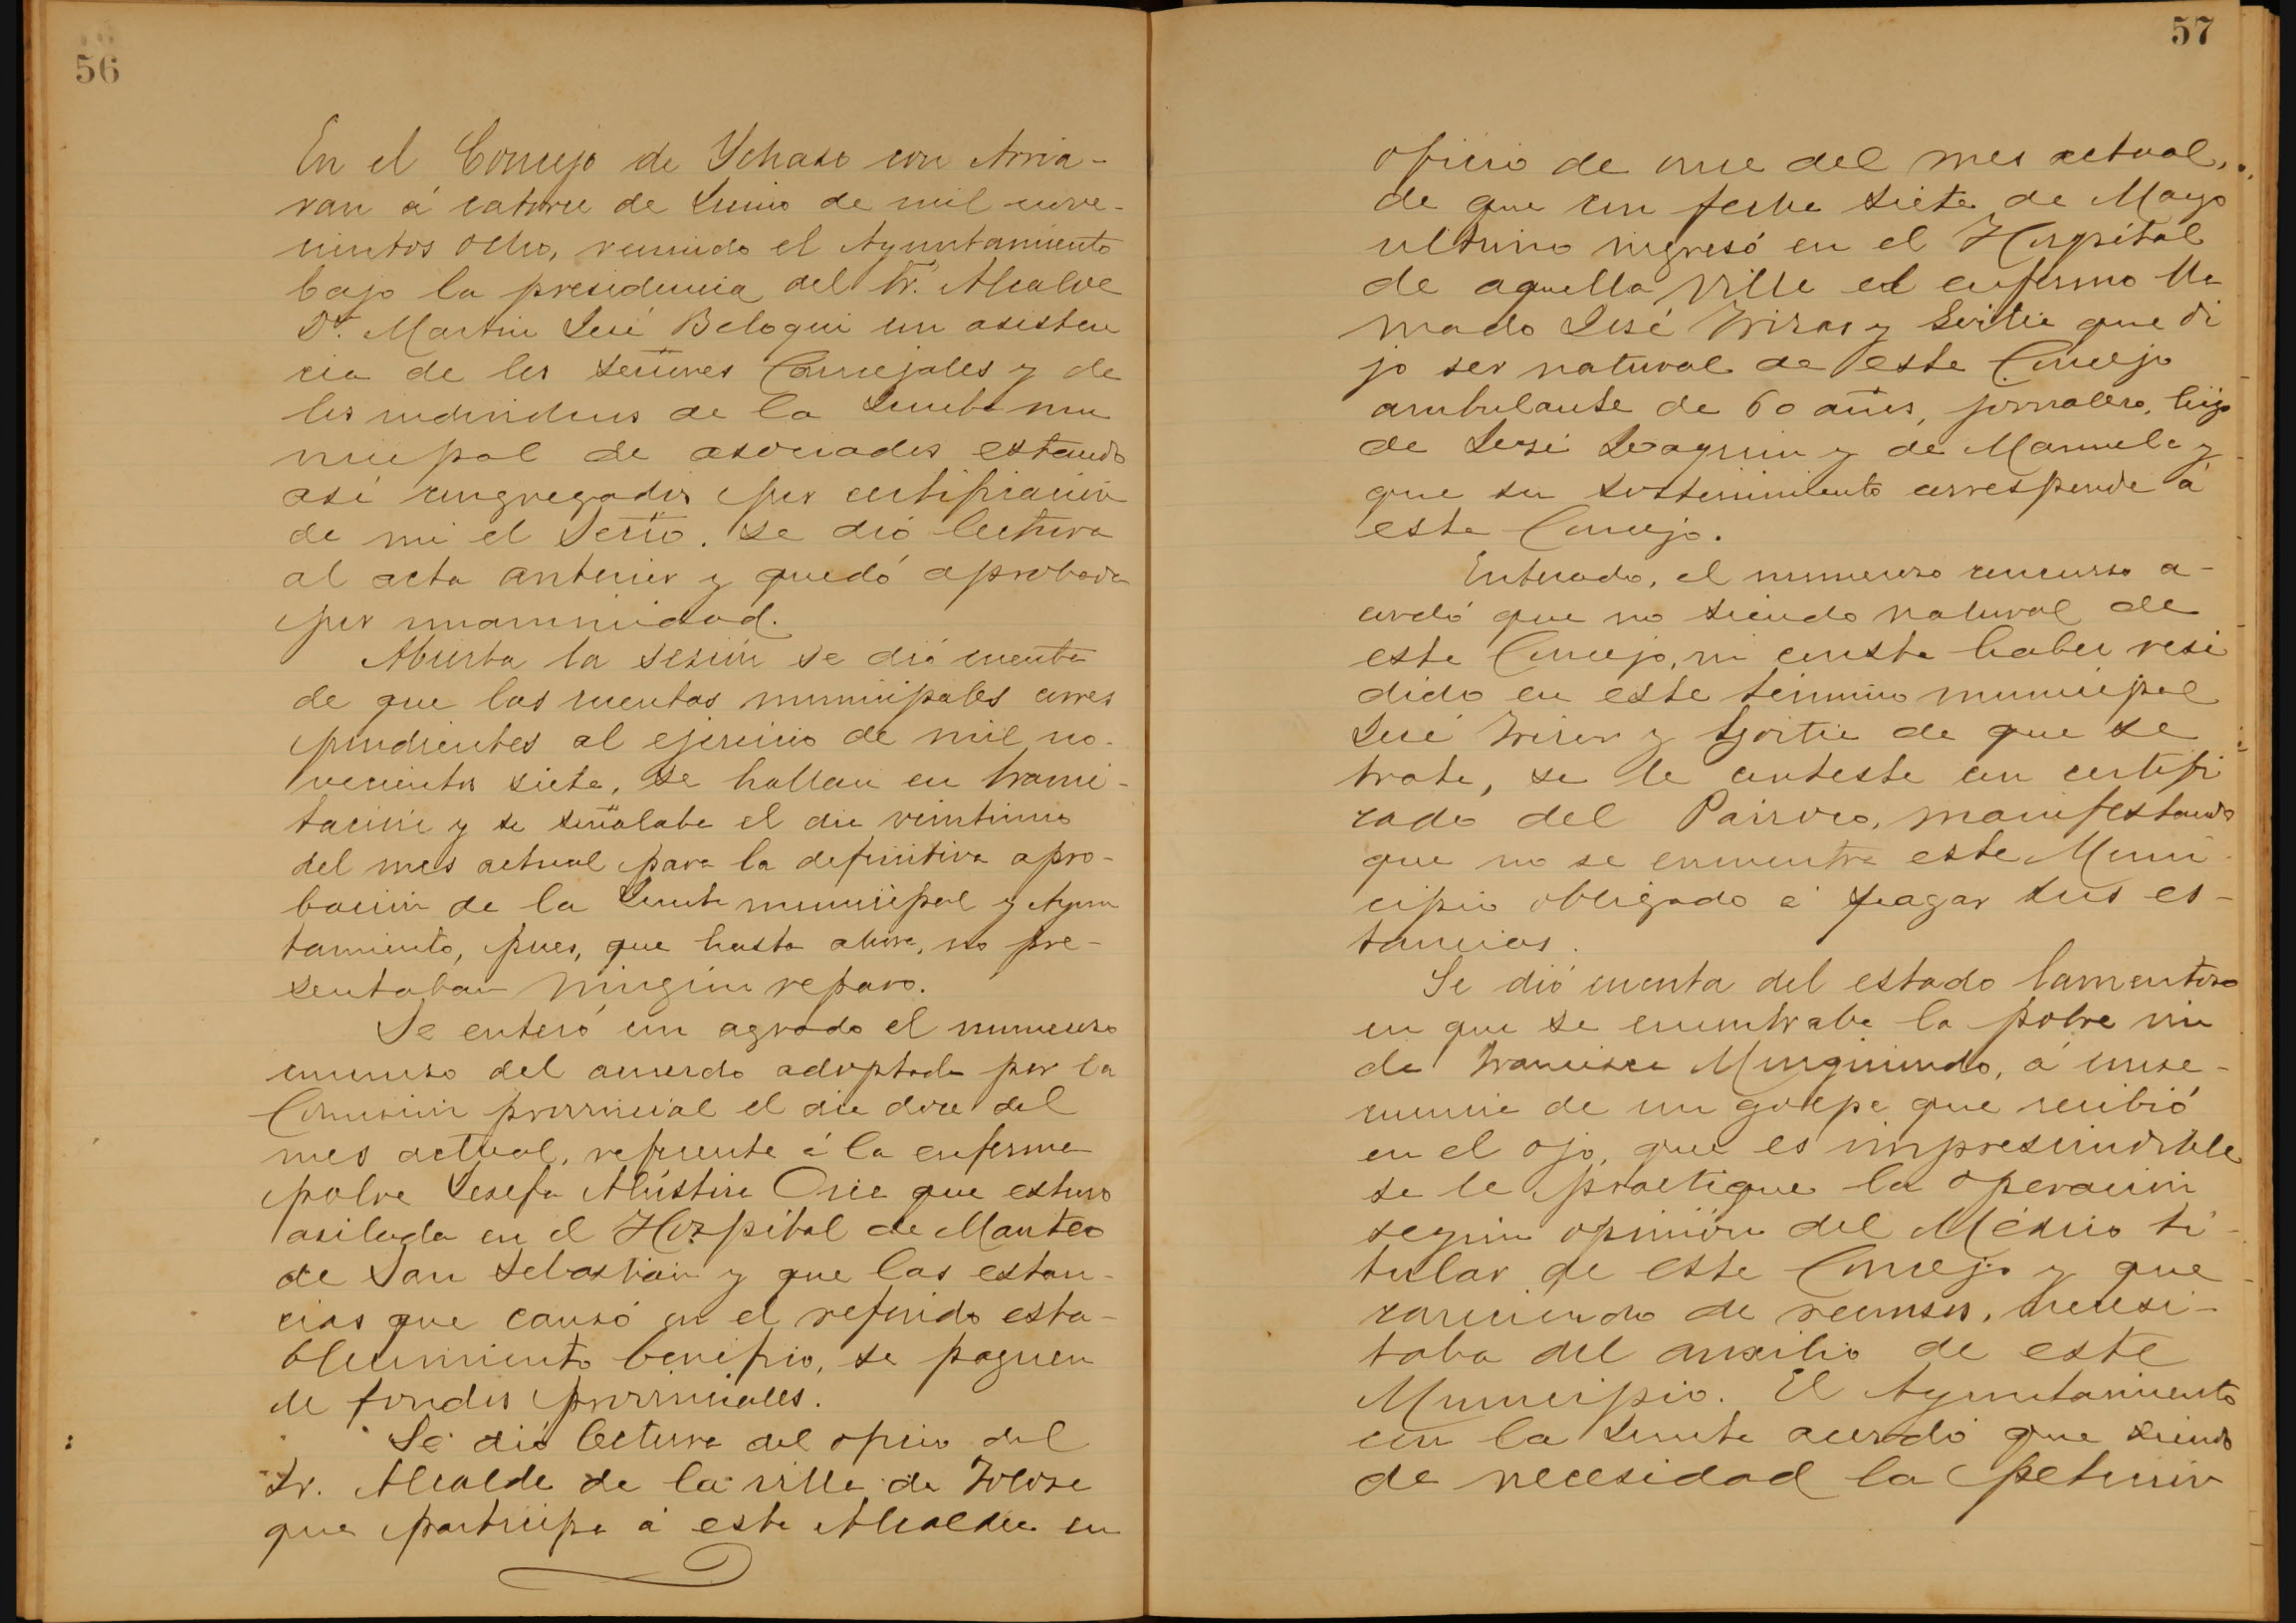 56
En el Concejo de Ychaso con Arria-
ran á catorce de Junio de mil nove-
cientos ocho, reunido el Ayuntamiento
bajo la presidencia del Sr. Alcalde
Dn. Martin José Beloqui con asisten
cia de los señores Concejales y de
los individuos de la Junta mu
nicipal de asociados estando
asi congregados por certificación
de mi el Serio. se dió lectura
al acta anterior y quedó aprobada
por unanimidad.
Abierta la sesión se dió cuenta
de que las cuentas municipales corres
pondientes al ejercicio de mil no-
vecientos siete, se hallan en trami-
tación y se señalaba el dia veintiuno
del mes actual para la definitiva apro-
bación de la Junta municipal y Ayun
tamiento, pues, que hasta ahora, no pre-
sentaban ningún reparo.
Se enteró con agrado el numeroso
concurso del acuerdo adoptado por la
Comisión provincial el dia doce del
mes actual, referente á la enferma
pobre Josefa Alústiza Oria que estuvo
asilada en el Hospital de Manteo
de San Sebastian y que las estan-
cias que causó en el referido esta-
blecimiento benefico, se paguen
de fondos provinciales.
Se dió lectura del oficio del
Sr. Alcalde de la villa de Tolosa
que participa á esta Alcaldia en
57
oficio de once del mes actual,
de que con fecha siete de Mayo
ultimo ingresó en el Hospital
de aquella villa el enfermo lla
mado José y que di
jo ser natural de este Concejo
ambulante de 60 años, jornalero, hijo
de José Joaquin y de Manuela y
que su sostenimiento corresponde á
este Concejo.
Enterado, el numeroso concurso a-
cordó que no siendo natural de
este Concejo, ni conste haber resi
dido en este término municipal
José y de que se
trata, se le conteste con certifi
cado del Párroco, manifestando
que no se encuentra este Muni-
cipio obligado á pagar sus es-
tancias.
Se dió cuenta del estado lamentoso
en que se encontraba la pobre viu
da Francisca Munguiondo, á conse-
cuencia de un golpe que recibió
en el ojo, que es imprescindible
se le practique la operación
según opinión del Médico ti-
tular de este Concejo y que
careciendo de recursos, necesi-
taba del auxilio de este
Municipio. El Ayuntamiento
con la Junta acordó que siendo
de necesidad la petición